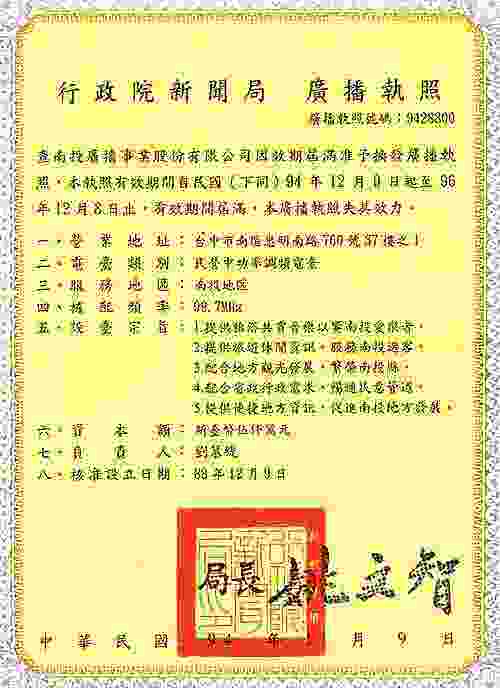 行政院新聞局　廣播執照
廣播執照號碼：9428800
查南投廣播事業股份有限公司因效期屆滿准予換發廣播執
照。本執照有效期間自民國（下同）94 年 12 月 9 日起至 96
年 12 月 8 日止，有效期間屆滿，本廣播執照失其效力。
一、營業地址：台中市南區忠明南路 760 號 37 樓之 1
二、電臺類別：民營中功率調頻電臺
三、服務地區：南投地區
四、核配頻率：99.7Mhz
五、設臺宗旨：1.提供 南投
2.提供旅遊休閒資訊，服務南投遊客。
3.配合地方觀光發展，繁榮南投縣。
4.配合 政行政需求，暢通民意管道。
5.提供便捷地方資訊，促進南投地方發展。
六、資本額：新臺幣伍仟萬元
七、負責人：劉
八、核准設立日期：88 年 12 月 9 日
局長 姚文智
中華民國 94 年 月 9 日